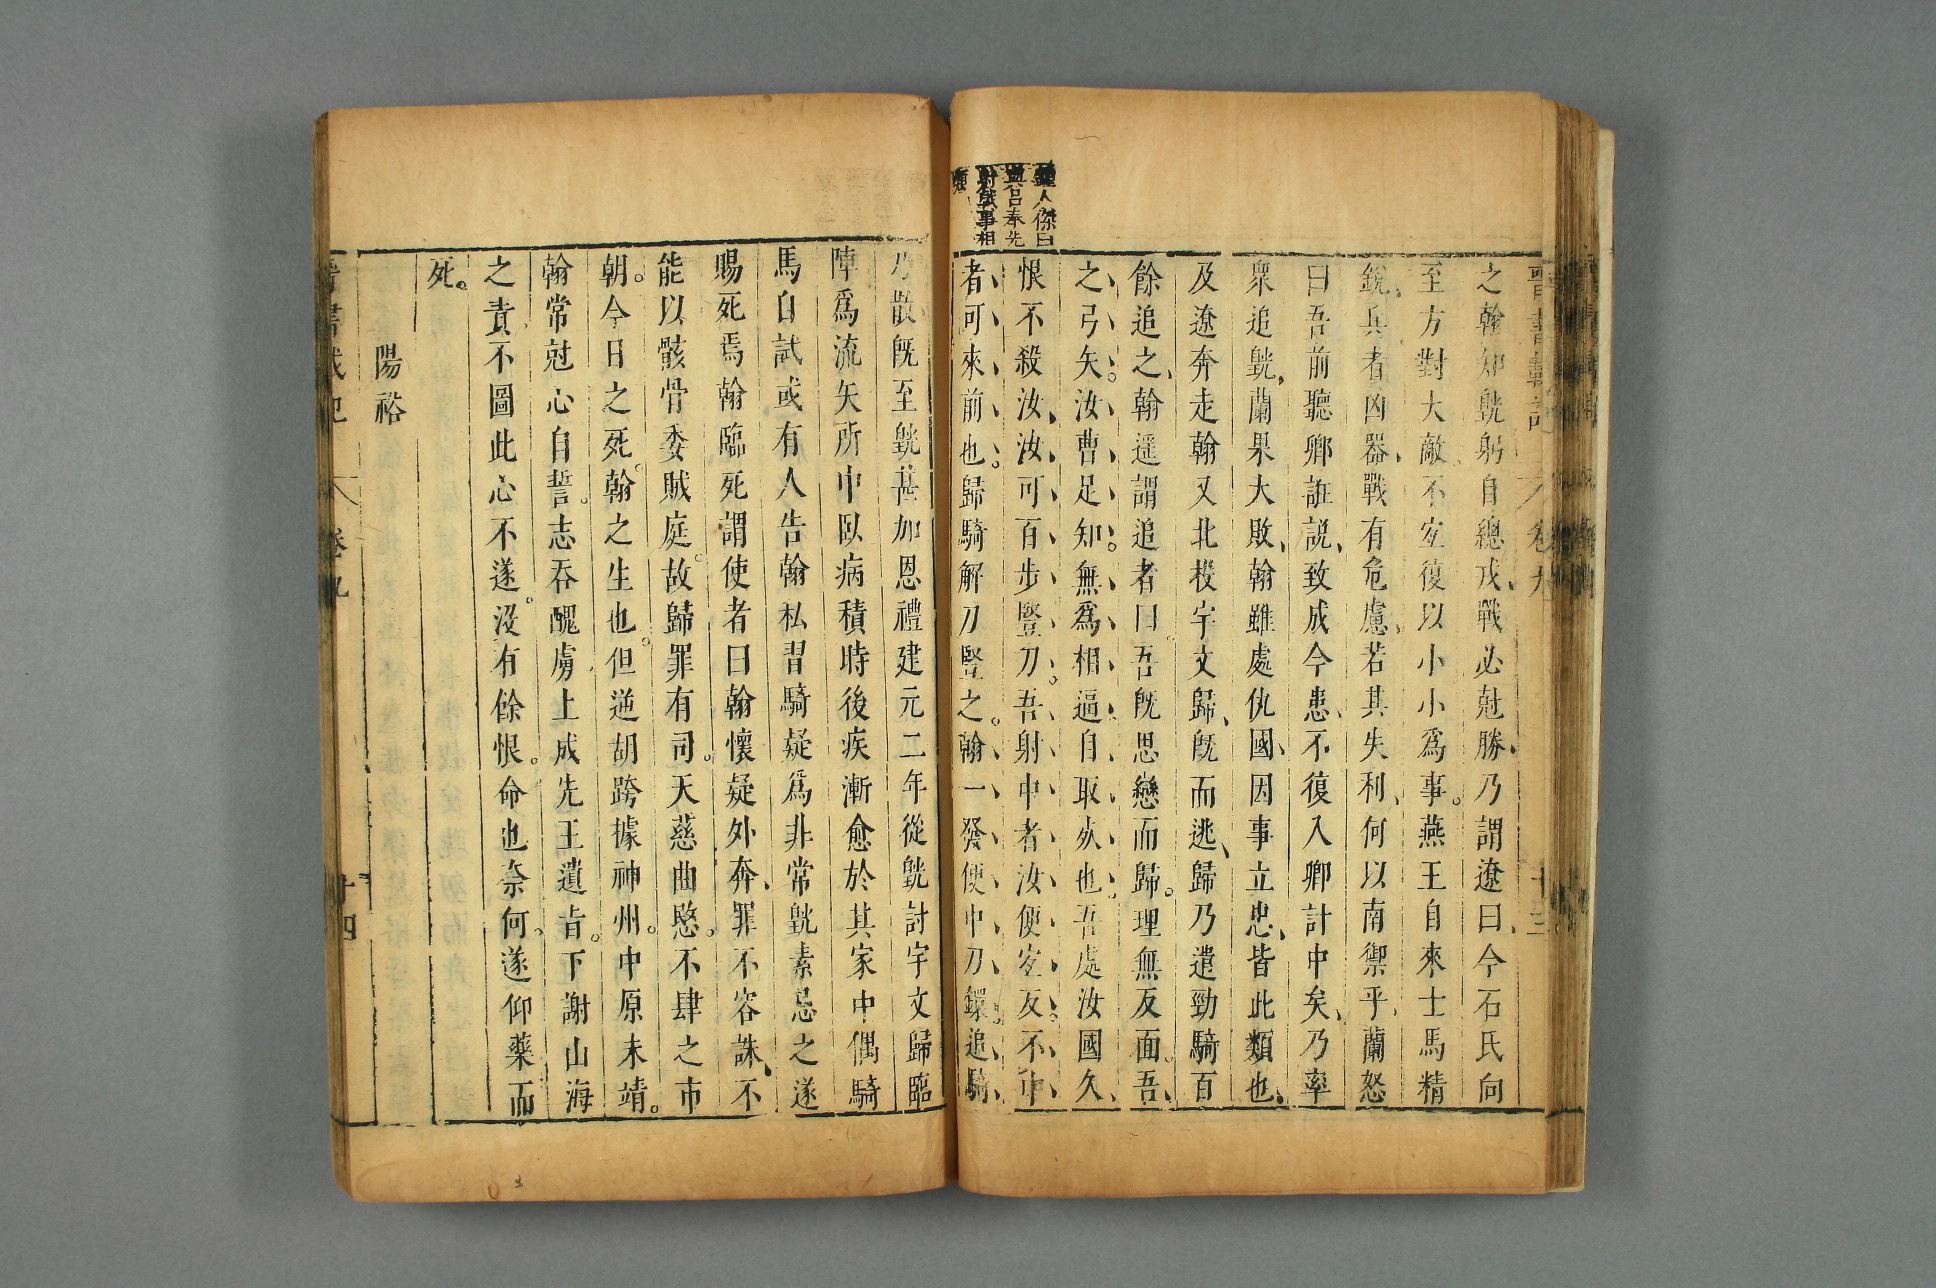 鍾人傑曰
與呂奉先
射戟事相
類
晉書載記
卷九
十三
之翰知皝躬自總戎戰必尅勝乃謂遼曰今石氏向
至方對大敵不宜復以小小爲事燕王自來士馬精
銳兵者凶器戰有危慮若其失利何以南禦乎蘭怒
曰吾前聽卿誑説致成今患不復入卿計中矣乃率
衆追皝蘭果大敗翰雖處仇國因事立忠皆此類也
及遼奔走翰又北投宇文歸旣而逃歸乃遣勁騎百
餘追之翰遥謂追者曰吾旣思戀而歸理無反面吾
之弓矢汝曹足知無爲相逼自取死也吾處汝國久
恨不殺汝汝可百步豎刀吾射中者汝便宜反不中
者可來前也歸騎解刀豎之翰一發便中刀鐶追騎
乃散旣至皝甚加恩禮建元二年從皝討宇文歸臨
陣爲流矢所中臥病積時後疾漸愈於其家中偶騎
馬自試或有人告翰私習騎疑爲非常皝素忌之遂
賜死焉翰臨死謂使者曰翰懷疑外奔罪不容誅不
能以骸骨委賊庭故歸罪有司天慈曲愍不肆之市
朝今日之死翰之生也但逆胡跨據神州中原未靖
翰常尅心自誓志吞醜虜上成先王遺旨下謝山海
之責不圖此心不遂沒有餘恨命也奈何遂仰藥而
死
陽裕
晉書載記
卷九
十四